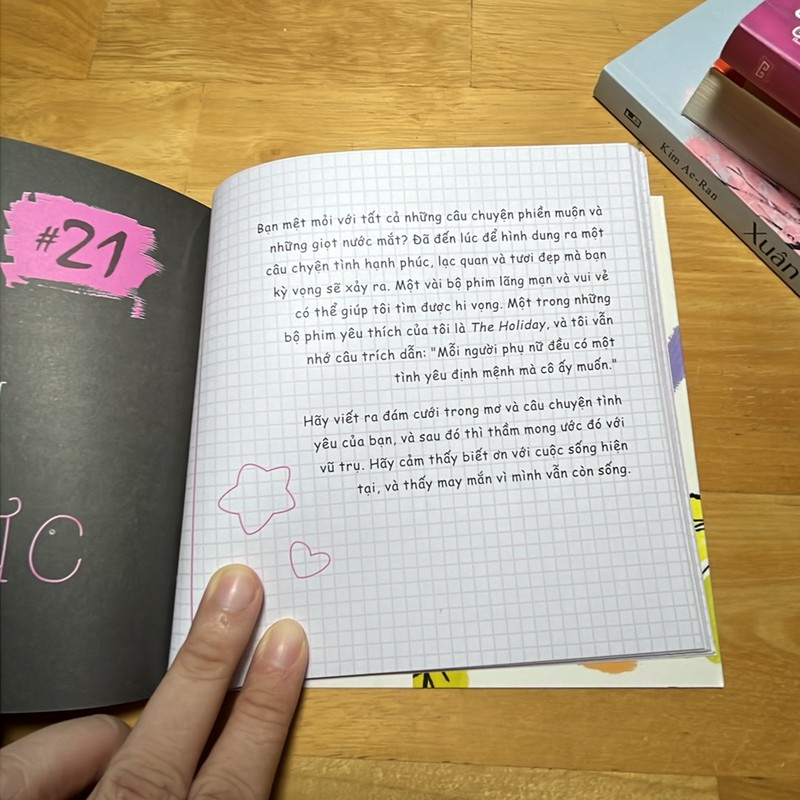 #21
ƯC
Bạn mệt mỏi với tất cả những câu chuyện phiền muộn và
những giọt nước mắt? Đã đến lúc để hình dung ra một
câu chyện tình hạnh phúc, lạc quan và tươi đẹp mà bạn
kỳ vọng sẽ xảy ra. Một vài bộ phim lãng mạn và vui vẻ
có thể giúp tôi tìm được hi vọng. Một trong những
bộ phim yêu thích của tôi là The Holiday, và tôi vẫn
nhớ câu trích dẫn: "Mỗi người phụ nữ đều có một
tình yêu định mệnh mà cô ấy muốn."
Hãy viết ra đám cưới trong mơ và câu chuyện tình
yêu của bạn, và sau đó thì thầm mong ước đó với
vũ trụ. Hãy cảm thấy biết ơn với cuộc sống hiện
tại, và thấy may mắn vì mình vẫn còn sống.
Kim Ae-Ran
Xuân